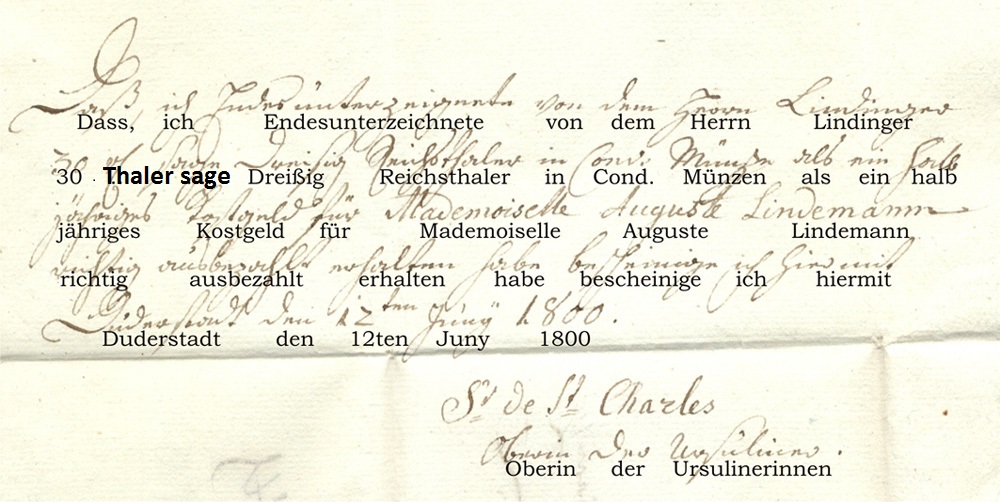 Daß, ich Endesunterzeignete von dem Herrn Lindinger
Dass, ich Endesunterzeichnete von dem Herrn Lindinger
30 sage Dreisig Reichsthaler in Conv. Münze als ein halb
30 . Thaler sage Dreißig Reichsthaler in Cond. Münzen als ein halb
jähriges Kostgeld für Mademoiselle Auguste Lindemann
jähriges Kostgeld für Mademoiselle Auguste Lindemann
richtig ausbezahlt erhalten habe bescheinige ich hiermit
richtig ausbezahlt erhalten habe bescheinige ich hiermit
Duderstadt den 12ten Juny 1800.
Duderstadt den 12ten Juny 1800
Sr de St Charles
Oberin der Ursuliner.
Oberin der Ursulinerinnen